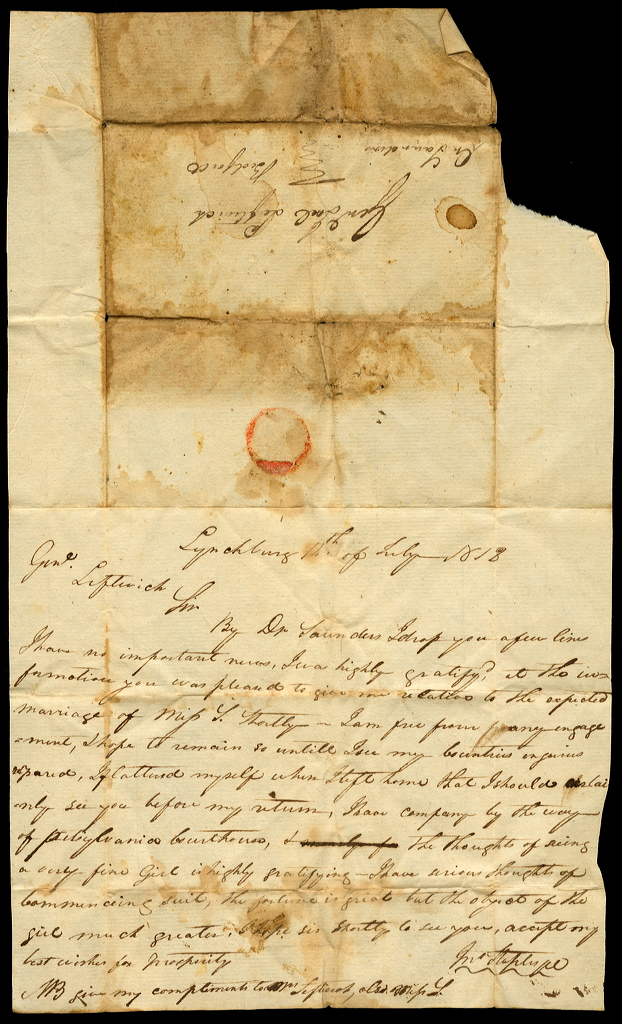 Dr Saunders
Genl Joel Leftwich
Bedford
Lynchburg 14th of July 1818
Genl.
Leftwich
Sir
By Dr Saunders I drop you a few lines
I have no important news, I was highly gratifyd, at the in=
formation you was pleasd to give me relation to the expected
marriage of Miss S. Shortly – I am free from any engage
=ment, I hope to remain so untill I see my Countries enquires
repared, I flatterd myself when I left home that I should certai
only see you before my return, I have company by the way
of Pittsylvania Courthouse, & the thoughts of seeing
a very fine Girl is highly gratifying – I have serious thoughts of
Commencing suit, the fortune is great but the object of the
girl much greater, I hope sir shortly to see you, accept my
best wishes for Prosperity
Jno Staples
NB give my compliments to Mrs Leftwich, also Miss S.